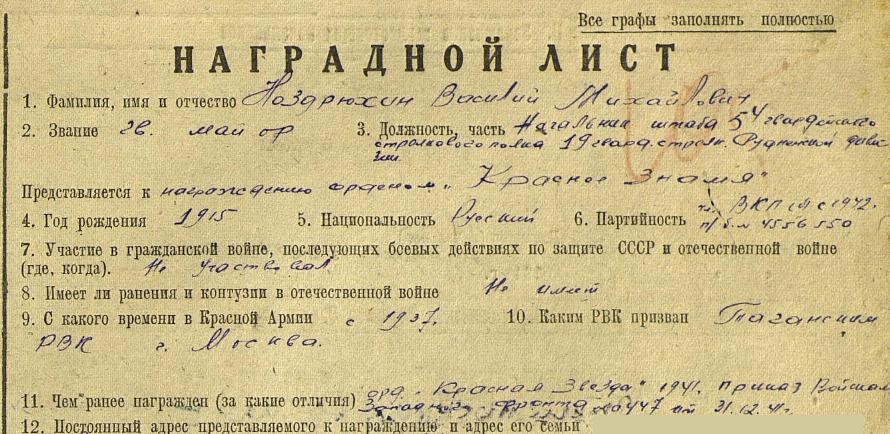 Все графы заполнять полностью
НАГРАДНОЙ ЛИСТ
1. Фамилия, имя и отчество Ноздрюхин Василий Михайлович
2. Звание гв. майор 3. Должность, часть Начальник штаба 54 гвардейского
стрелкового полка 19 гвард. стрелк. Рудненской диви-
зии.
Представляется к награждению орденом „Красное Знамя"
4. Год рождения 1915 5. Национальность Русский 6. Партийность чл. ВКП(б) с 1942.
п/б. № 4556550
7. Участие в гражданской войне, последующих боевых действиях по защите СССР и отечественной войне
(где, когда). Не участвовал
8. Имеет ли ранения и контузии в отечественной войне Не имеет
9. С какого времени в Красной Армии с 1937. 10. Каким РВК призван Таганским
РВК г. Москва.
11. Чем ранее награжден (за какие отличия) орд. „Красная Звезда" 1941. Приказ Войскам
Западного фронта №0447 от 31.12.41г.
12. Постоянный адрес представляемого к награждению и адрес его семьи